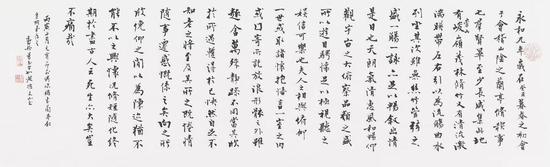 永和九年歲在癸丑暮春之初會
于會稽山陰之蘭亭脩稧事
也群賢畢至少長咸集此地
有崇山峻領茂林脩竹又有清流激
湍暎帶左右引以為流觴曲水
列坐其次雖無絲竹管弦之
盛一觴一詠亦足以暢叙幽情
是日也天朗氣清惠風和暢仰
觀宇宙之大俯察品類之盛
所以遊目騁懷足以極視聽之
娛信可樂也夫人之相與俯仰
一世或取諸懷抱悟言一室之内
或因寄所託放浪形骸之外雖
趣舍萬殊靜躁不同當其欣
於所遇暫得於己快然自足不
知老之將至及其所之既惓情
隨事遷感慨係之矣向之所
欣俛仰之閒以為陳迹猶不
能不以之興懷況脩短隨化終
期於盡古人云死生亦大矣豈
不痛哉